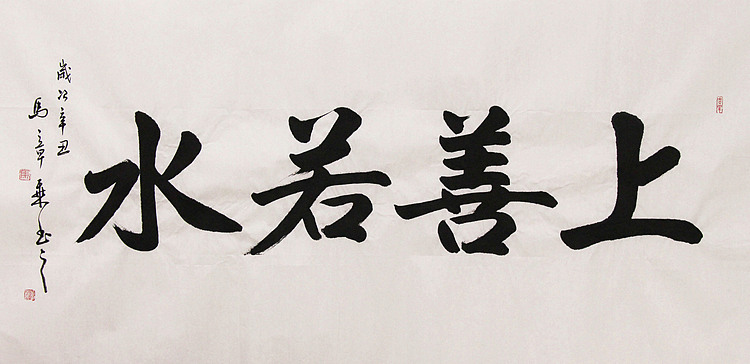 上善若水
歲次辛丑
馬章乘書